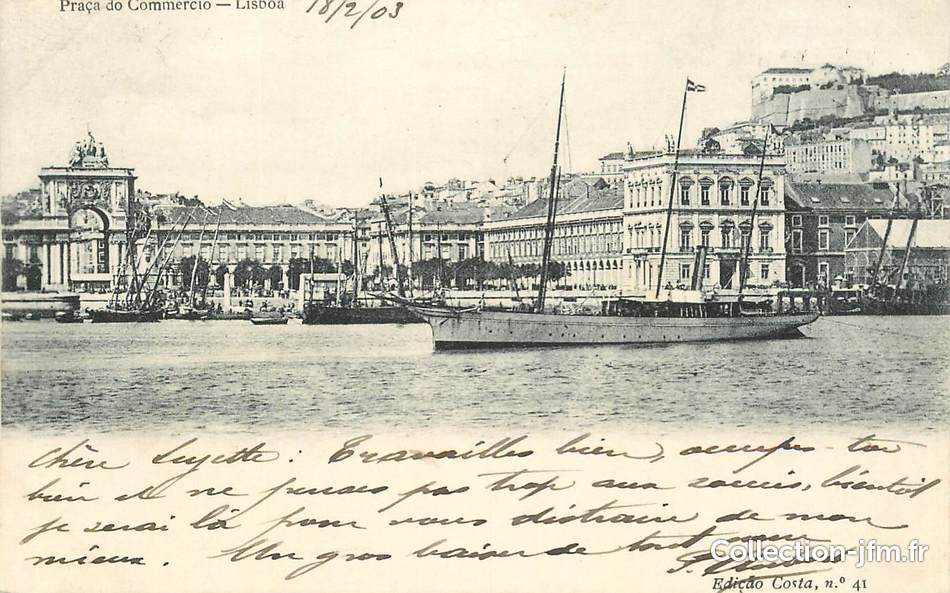 Praça do Commercio — Lisboa 18/2/03
Chère Suzette : Travailles bien, occupes-toi
bien et ne penses pas trop aux soucis, bientôt
je serai là pour vous distraire de mon
mieux. Un gros baiser de tout
Collection-jfm.fr
Edição Costa, n.º 41